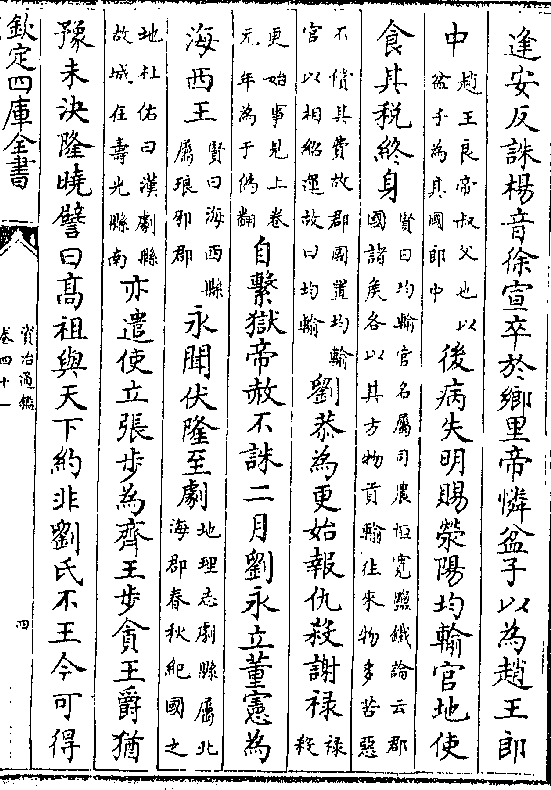 逢安反誅楊音徐宣卒於鄉里帝憐盆子以為趙王郎
中趙王良帝叔父也以
盆子為其國郎中後病失明賜滎陽均輸官地使
食其税終身賢曰均輸官名屬司農桓寛鹽鐵論云郡
國諸矦各以其方物貢輸往來物多苦惡
不償其費故郡國置均輸
官以相紹運故曰均輸劉恭為更始報仇殺謝禄禄
殺
更始事見上卷
元年為于偽翻自繫獄帝赦不誅二月劉永立董憲為
海西王賢曰海西縣
屬琅邪郡永聞伏隆至劇地理志劇縣屬北
海郡春秋紀國之
地杜佑曰漢劇縣
故城在壽光縣南亦遣使立張步為齊王步貪王爵猶
豫未決隆曉譬曰髙祖與天下約非劉氏不王今可得
欽定四庫全書
資治通鑑
卷四十一
四